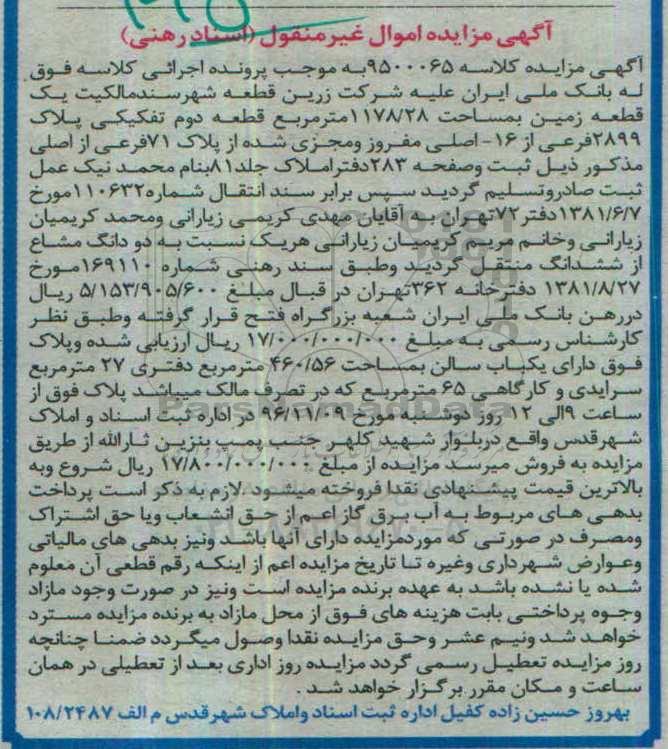 آگهی مزایده اموال غیرمنقول (اسناد رهنی)
آگهی مزایده کلاسه ۹۵۰۰۰۶۵به موجب پرونده اجرائی کلاسه فوق
له بانک ملی ایران علیه شرکت زرین قطعه شهرسندمالکیت یک
قطعه زمین بمساحت ۱۱۷۸/۲۸مترمربع قطعه دوم تفکیکی پلاک
۲۸۹۹فرعی از ۱۶-اصلی مفروز ومجزی شده از پلاک ۷۱فرعی از اصلی
مذکور ذیل ثبت وصفحه ۲۸۳دفتراملاک جلد۸۱بنام محمد نیک عمل
ثبت صادروتسلیم گردید سپس برابر سند انتقال شماره۱۱۰۶۳۲مورخ
۱۳۸۱/۶/۷دفتر۷۲تهران به آقایان مهدی کریمی زیارانی ومحمد کریمیان
زیارانی وخانم مریم کریمیان زیارانی هریک نسبت به دو دانگ مشاع
از ششدانگ منتقل گردید وطبق سند رهنی شماره ۱۶۹۱۱۰مورخ
۱۳۸۱/۸/۲۷ دفترخانه ۳۶۲تهران در قبال مبلغ ۵/۱۵۳/۹۰۵/۶۰۰ ریال
دررهن بانک ملی ایران شعبه بزرگراه فتح قرار گرفته وطبق نظر
کارشناس رسمی به مبلغ ۱۷/۰۰۰/۰۰۰/۰۰۰ ریال ارزیابی شده وپلاک
فوق دارای یکباب سالن بمساحت ۴۶۰/۵۶ مترمربع دفتری ۲۷ مترمربع
سرایدی و کارگاهی ۶۵ مترمربع که در تصرف مالک میباشد پلاک فوق از
ساعت ۹الی ۱۲ روز دوشنبه مورخ ۹۶/۱۱/۰۹ در اداره ثبت اسناد و املاک
شهرقدس واقع دربلوار شهید کلهر جنب پمپ بنزین ثارالله از طریق
مزایده به فروش میرسد مزایده از مبلغ ۱۷/۸۰۰/۰۰۰/۰۰۰ ریال شروع وبه
بالاترین قیمت پیشنهادی نقدا فروخته میشود.لازم به ذکر است پرداخت
بدهی های مربوط به آب برق گاز اعم از حق انشعاب ویا حق اشتراک
ومصرف در صورتی که موردمزایده دارای آنها باشد ونیز بدهی های مالیاتی
وعوارض شهرداری وغیره تا تاریخ مزایده اعم از اینکه رقم قطعی آن معلوم
شده یا نشده باشد به عهده برنده مزایده است ونیز در صورت وجود مازاد
وجوه پرداختی بابت هزینه های فوق از محل مازاد به برنده مزایده مسترد
خواهد شد ونیم عشر وحق مزایده نقدا وصول میگردد ضمنا چنانچه
روز مزایده تعطیل رسمی گردد مزایده روز اداری بعد از تعطیلی در همان
ساعت و مکان مقرر برگزار خواهد شد.
بهروز حسین زاده کفیل اداره ثبت اسناد واملاک شهرقدس م الف ۱۰۸/۲۴۸۷